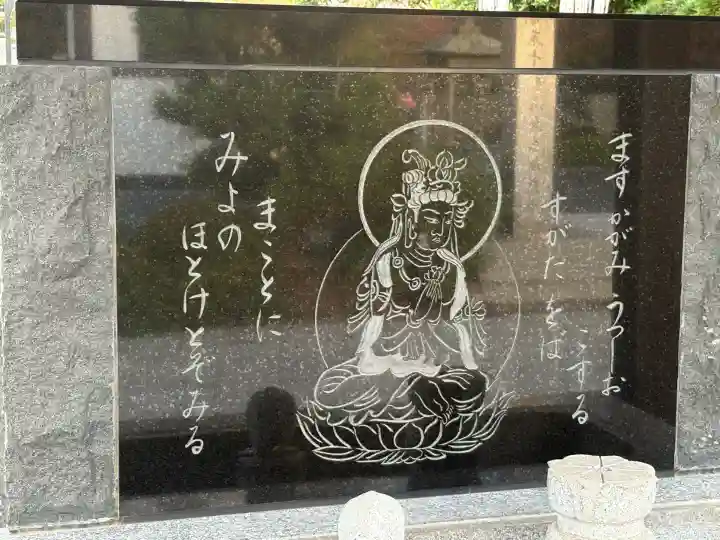 ますかがみうつしお
こする
すがたをは
まことに
みよの
ほとけとぞみる